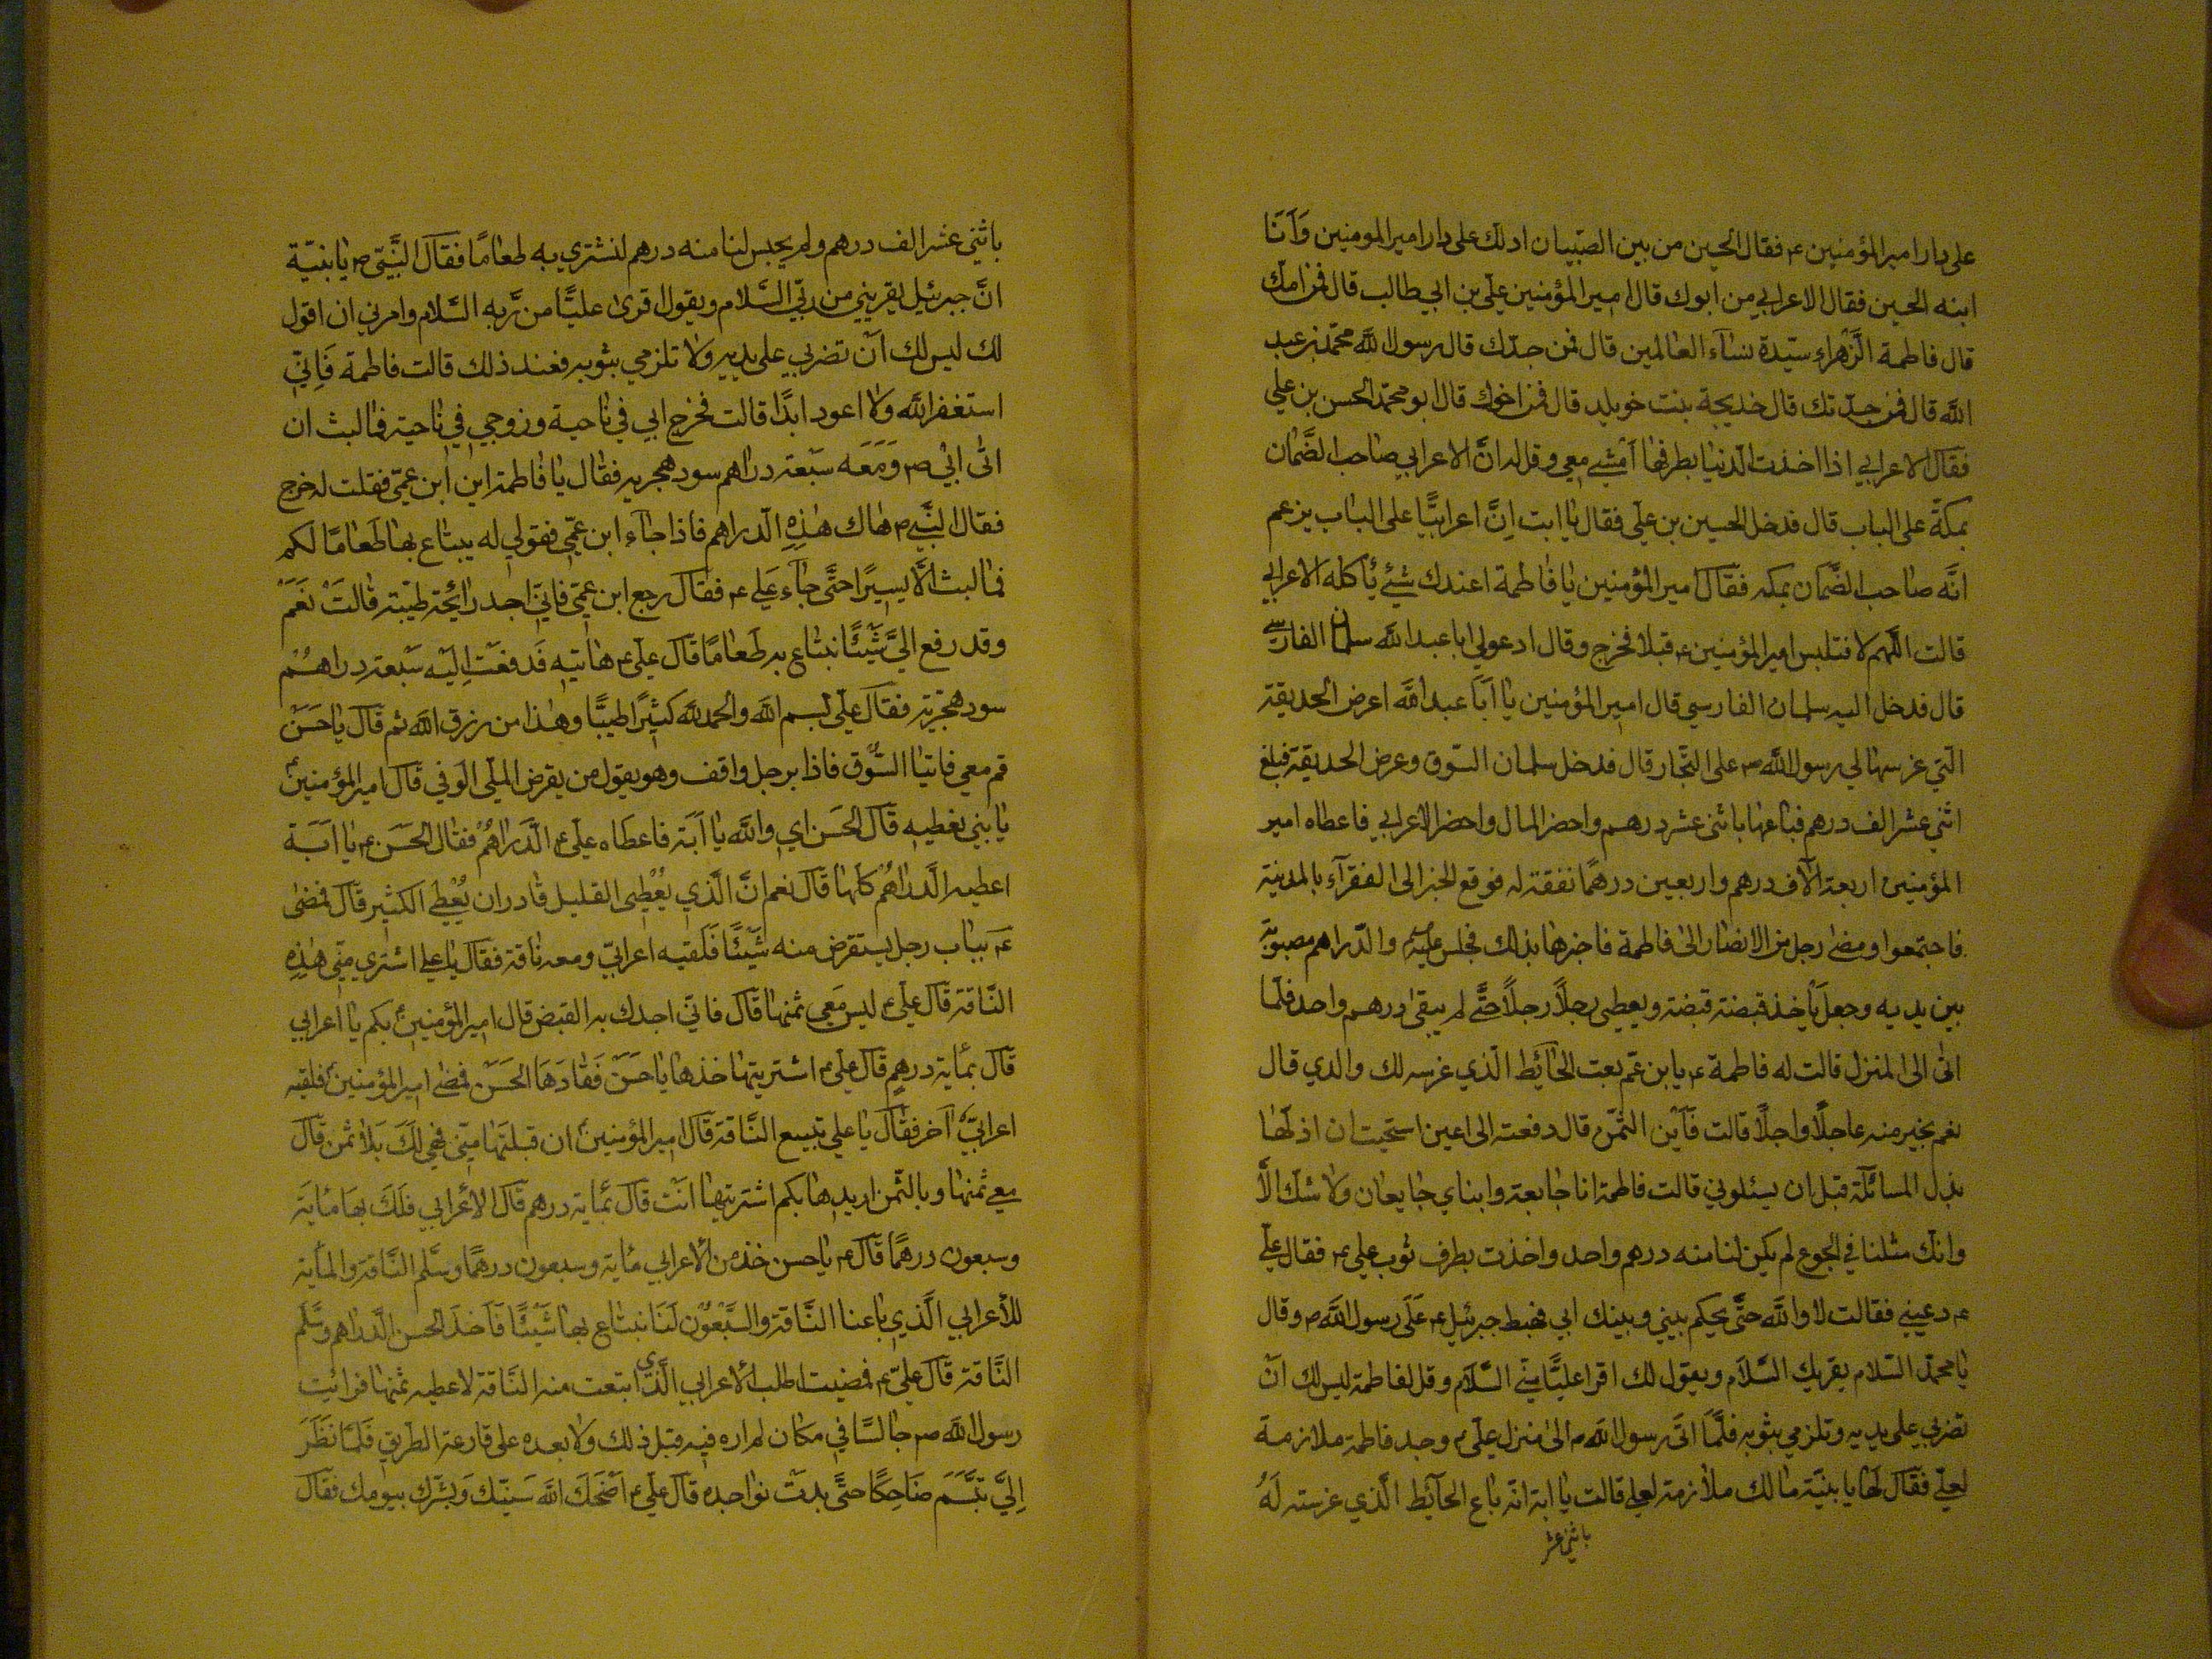 على دار امير المؤمنين ع فقال الحسين من بين الصبيان ادلك على دار امير المومنين وَاَنَا
ابنه الحسين فقال الاعرابي من ابوك قال امير المؤمنين علي بن ابي طالب قال فمن امك
قال فاطمة الزَّهراء سيّدة نسآء العالمين قال فمن جدّك قال رسول اللّه محمّد بن عبد
اللّه قال فمن جدّتك قال خديجة بنت خويلد قال فمن اخوك قال ابو محمّد الحسن بن علي
فقال الاعرابي اذا اخذت الدنيا بطرفيها اَمشِى معي و قل له انَّ الاعرابي صاحب الضَّمان
بمكة على الباب قال فدخل الحسين بن علي فقال يا ابت اِنَّ اعرابيًّا على الباب يزعم
انَّه صاحب الضَّمان بمكه فقال امير المؤمنين يا فاطمة اعندك شيئ يأكله الاعرابي
قالت اللّهم لا فتلبس امير المؤمنين ع قبلا فخرج وقال ادعولي ابا عبد اللّه سلمان الفارسي
قال فدخل اليه سلمان الفارسي قال امير المؤمنين يا اَبَا عبد اللّه اعرض الحديقة
الّتي غرسها لي رسول اللّه ص على التّجار قال فدخل سلمان السّوق وعرض الحديقة فبلغ
اثنى عشر الف درهم فباعها باثنى عشر درهم واحضر المال واحضر الاعرابي فاعطاه امير
المؤمنين اربعة الآف درهم واربعين درهمًا نفقة له فوقع الخبر الى الفقرآء بالمدينة
فاجتمعوا ومضى رجل من الانصار الى فاطمة فاخبرها بذلك فجلس علي ع والدّراهم مصبوبة
بين يديه وجعل ياخذ قبضة قبضة ويعطى رجلاً رجلاً حتَّى لم يبقى درهم واحد فلمّا
اتى الى المنزل قالت له فاطمة ع يا بن عم بعت الحائط الّذي غرسه لك والدي قال
نعم بخير منه عاجلًا واجلًا قالت فاَين الثّمن قال دفعته الى اعين استحيت ان اذلّها
بذل المسائلة قبل ان يسئلوني قالت فاطمة انا جايعة وابناي جايعان ولا شك الاّ
وانك مثلنا في الجوع لم يكن لنا منه درهم واحد واخذت بطرف ثوب علي ع فقال علي
ع دعيني فقالت لا واللّه حتَّى يحكم بيني وبينك ابي فهبط جبرئيل ع عَلَى رسول اللّه ص وقال
يا محمّد السّلام يقريك السّلام ويقول لك اقرا عليًّا منّي السّلام وقل لفاطمة ليس لك ان
تضربي على يديه وتلزمي بثوبه فلمَّا اتى رسول اللّه ص الى منزل علي ع وجد فاطمة ملازمة
لعليّ فقال لها يا بنيّة مالك ملازمة لعلي قالت يا ابة انّه باع الحآئط الّذي غرسته لَهُ
باثنى عشر
باثني عشر الف درهم ولم يحبس لنا منه درهم لنشتري به طعامًا فقال النَّبيّ ص يا بنيّة
انَّ جبرئيل يقريني من ربّي السَّلام ويقول اقرئ عليًّا من رَّبه السّلام وامرني ان اقول
لك ليس لك اَن تضربي على يديه ولا تلزمي بثوبه فعند ذلك قالت فاطمة فَاِنّي
استغفر اللّه ولا اعود ابدًا قالت فخرج ابي في ناحية وزوجي في ناحية فما لبث ان
اتى ابي ص وَمَعَه سَبعة دراهم سود هجريه فقال يا فاطمة اين ابن عمّي فقلت له خرج
فقال النَّبي ص هاك هٰذِهِ الدّراهم فاذا جآء ابن عمّي فقولي له يبتاع بها طَعَامًا لكم
فما لبث الّا يسيرًا حتَّى جآء عَلي ع فقال رجع ابن عمّي فاِنّي اجد رائحة طيّبة قالتْ نعَم
وقد دفع اليَّ شَيْئًا نبتاع به طَعَامًا قال علي ع هاتيه فَدفعَتْ اِليْه سَبعة دراهُم
سود هجريّة فقال علي بسم اللّه والحمد للّه كثيرًا طيبًا وهٰذا من رزق اللّه ثم قال يا حَسَن
قم معي فاتيا السُّوق فاذا برجل واقف وهو يقول من يقرض الملي الوفي قال امير المؤمنين ع
يا بني نعطيه قال الحَسَن اي واللّه يا اَبَة فاعطاه علي ع الدّراهُمْ فقال الحَسَن ع يا اَبَة
اعطيه الدَّراهُم كلّها قال نعم انَّ الَّذي يُعْطِى القليل قادر ان يُعْطِي الكثير قال فمضى
ع بباب رجل يستقرض منه شَيْئًا فَلقيه اعرابيّ ومعه ناقة فقال يا علي اشتري منّي هٰذِهِ
النّاقة قال علي ع ليس مَعي ثمنها قال فانّي اجدك به القبض قال امير المؤمنين ع بكم يا اعرابي
قال بمأية درهمٍ قال علي ع اشتريتها خذها يا حَسَن فَقادَهَا الحَسَن فمضى امير المؤمنين ع فلقيه
اعرابيّ آخر فقال يا علي تبيع النّاقة قال امير المؤمنين ع ان قبلتها منّي فهي لكَ بَلا ثمن قال
معي ثمنها وبالثّمن اريدها بكم اشتريتها انت قال بمأية درهم قال الاعْرابي فلَكَ بهَا مأيَة
وسبعون درهمًا قال ع يا حسن خذ من الأعرابي مأية وسبعون درهمًا وسَلِّم النَّاقة والمأية
للأعرابي الَّذي باعنا النَّاقة والسَّبْعُون لَنا نبتاع بها شَيْئًا فاَخذ الحسن الدّراهم وسَّلم
النَّاقة قال عليّ ع فمضيت اطلب الأعرابي الَّذي ابتعت منه النَّاقة لاعطيه ثمنها فرايت
رسول اللّه ص جالسًا في مكان لم اره فيه قبل ذلك ولا بعده على قارعة الطّريق فَلمّا نَظَرَ
اِليَّ تبَسَّم ضاحِكًا حتَّى بدَت نواجده قال علي ع اضحك اللّه سَنيّك وَبشّرك بيومك فقال